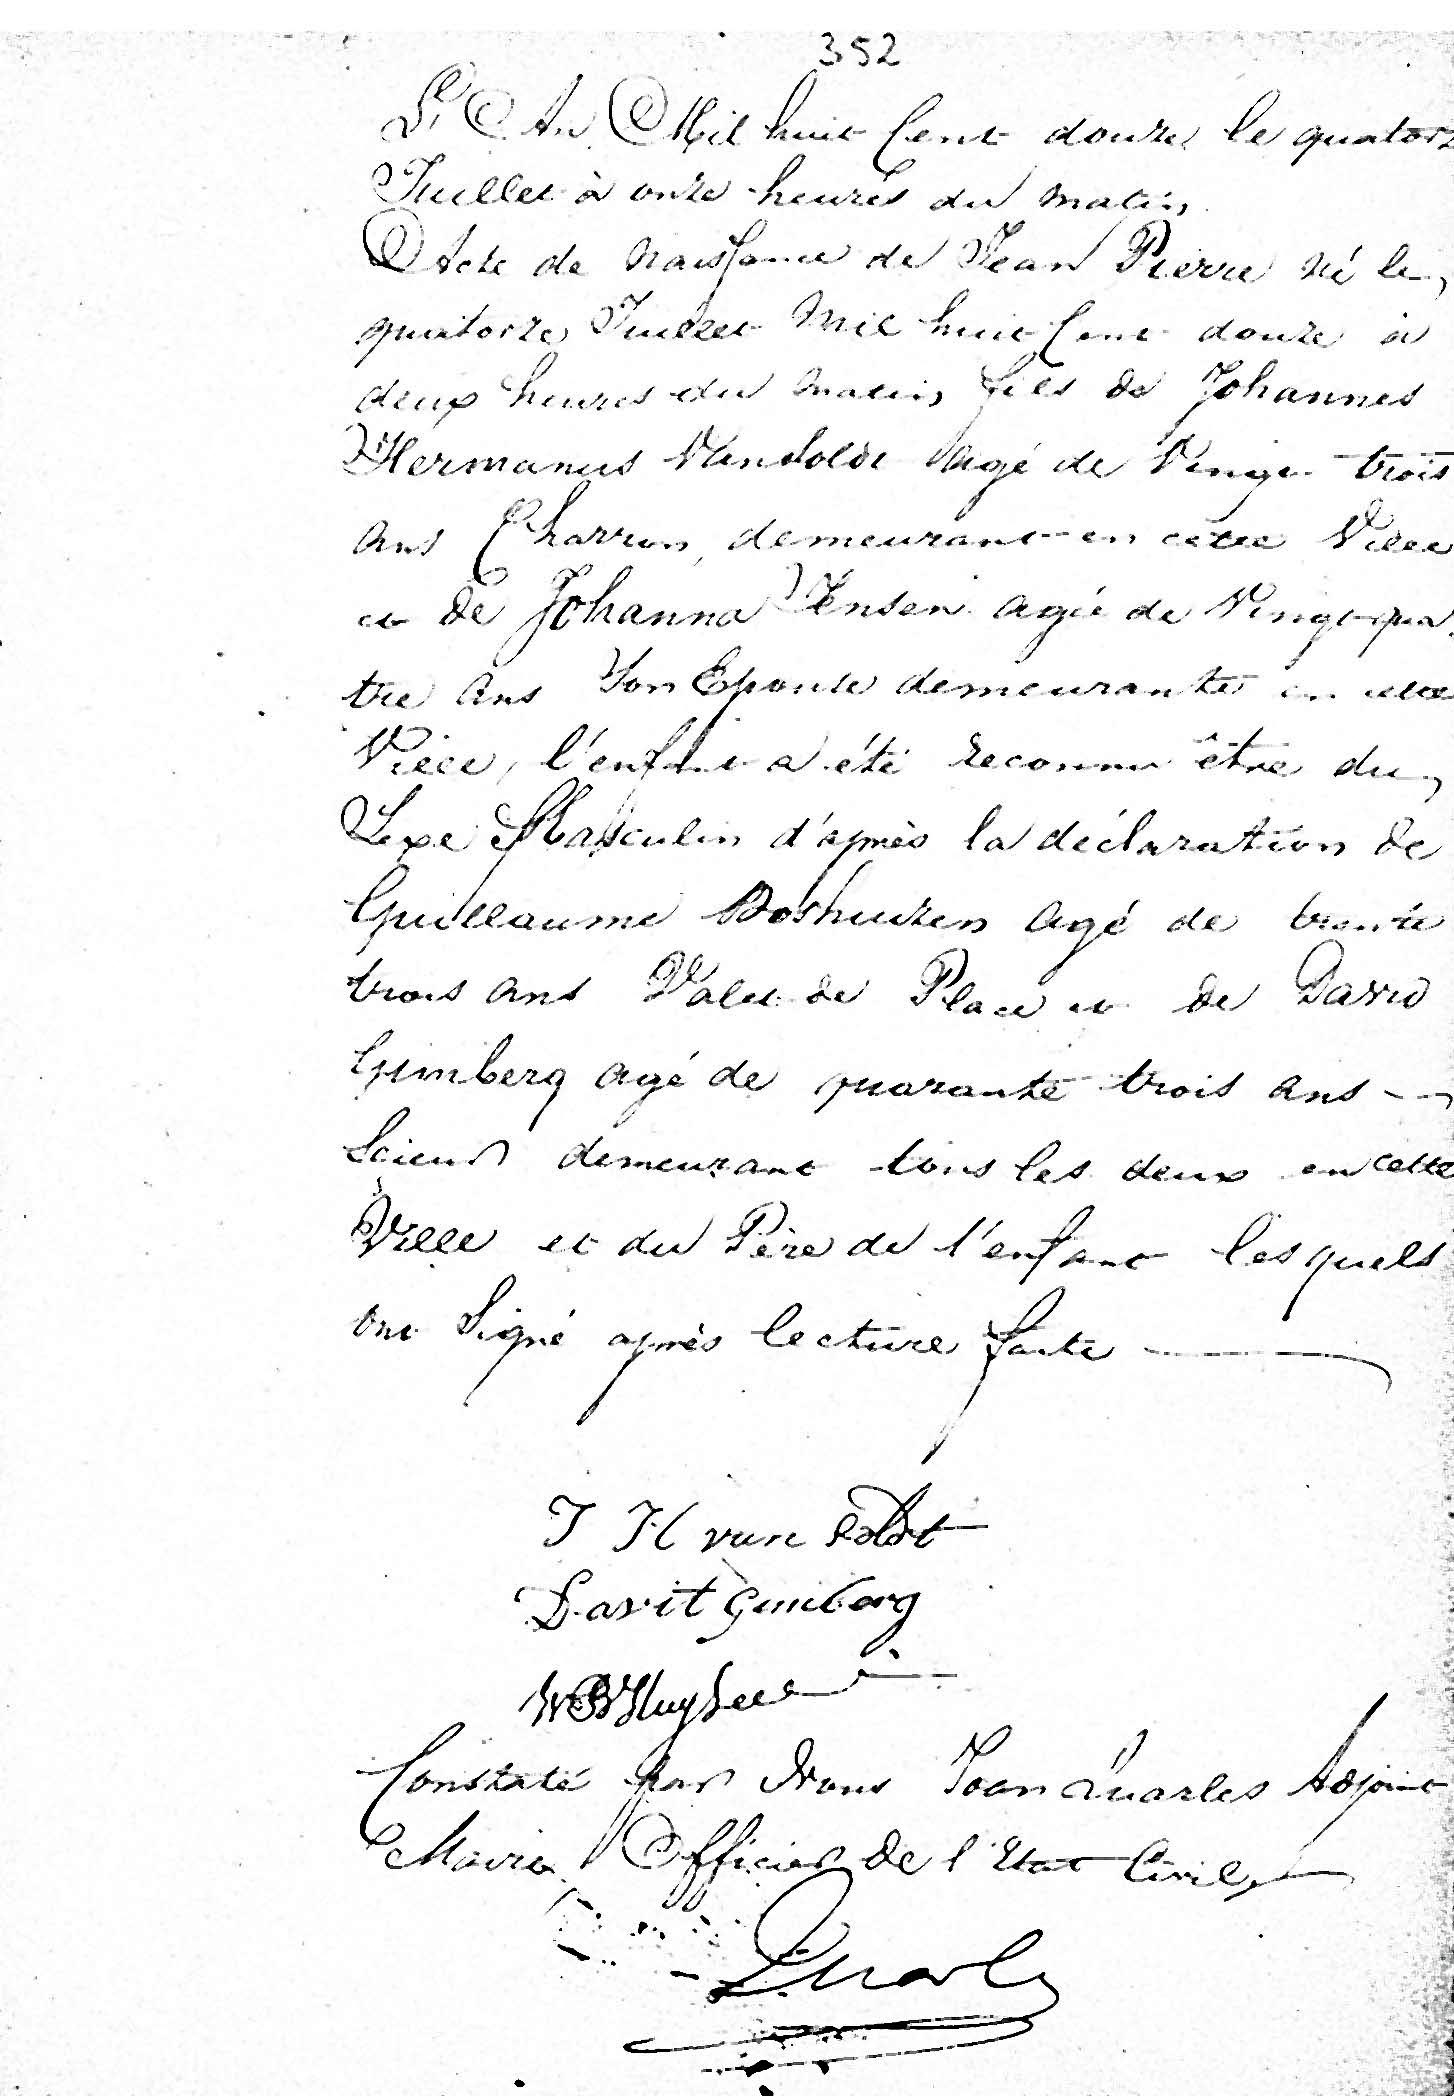 352
L'An Mil huit Cent douze le quatorz
Juillet à onze heures du matin
Acte de Naissance de Jean Pierre né le
quatorze Juillet Mil huit Cent douze à
deux heures du matin fils de Johannes
Hermanus Vansoldt agé de Vingt trois
ans Charron, demeurant en cette Ville
et de Johanna Jensen agée de Vingt qua
tre ans Son Epouse demeurante en cette
Ville, l'enfant a été reconnu être du
Sexe Masculin d'après la déclaration de
Guillaume Boshuizen agé de trente
trois ans Valet de Place et de David
Gimberg agé de quarante trois ans
Scieur demeurant tous les deux en cette
Ville et du Père de l'enfant lesquels
ont Signé après lecture faite
J H van Soldt
Davit Gimberg
Constaté par Nous Jean Quarles Adjoint
Maire Officier de l'Etat Civil
Quarles